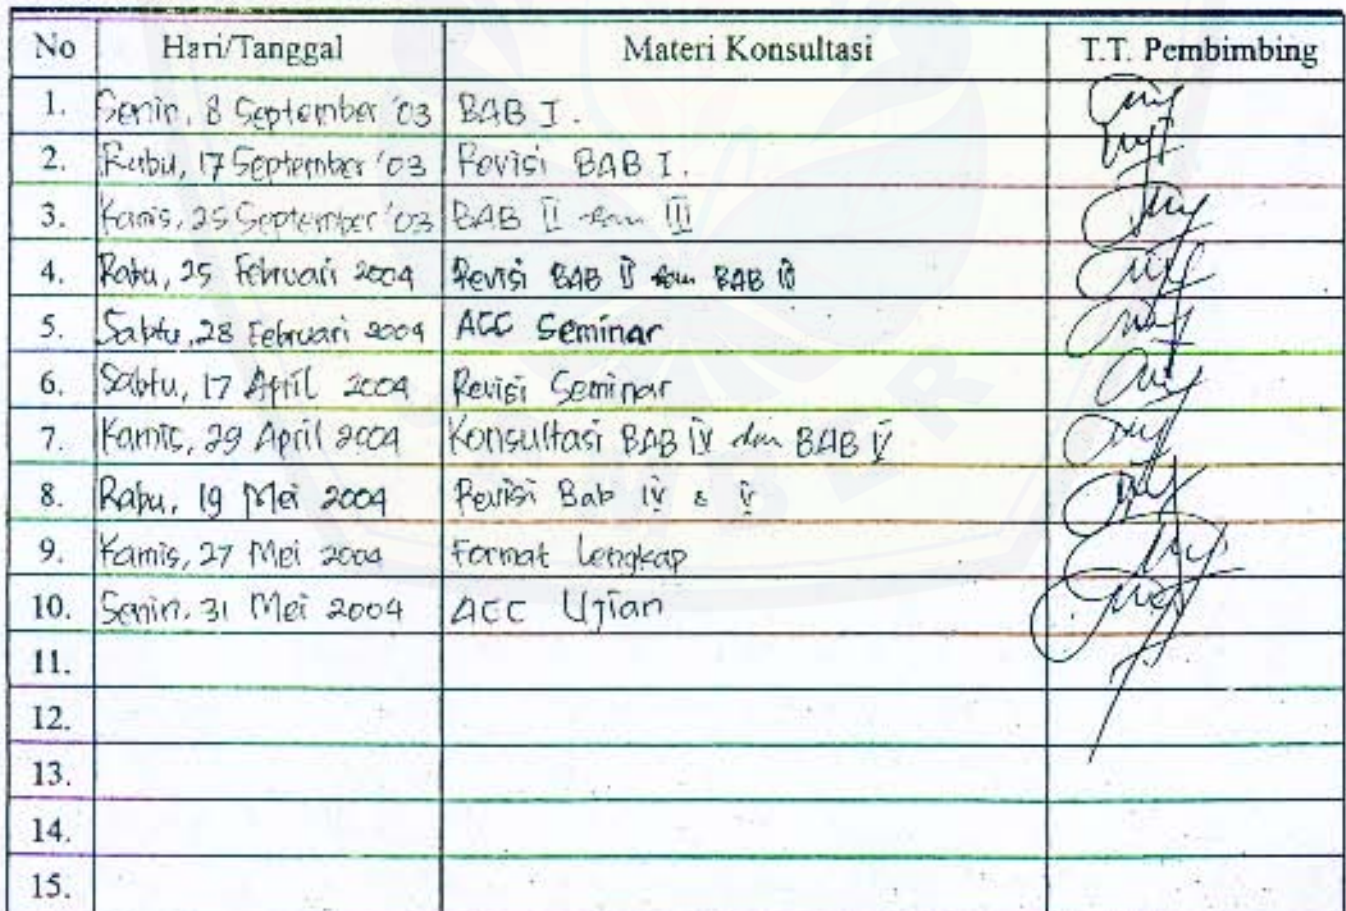 No Hari/Tanggal Materi Konsultasi T.T. Pembimbing
1. Senin, 8 September '03 BAB I.
2. Rabu, 17 September '03 Revisi BAB I.
3. Kamis, 25 September '03 BAB II dan III
4. Rabu, 25 Februari 2004 Revisi BAB II dan BAB III
5. Sabtu, 28 Februari 2004 ACC Seminar
6. Sabtu, 17 April 2004 Revisi Seminar
7. Kamis, 29 April 2004 Konsultasi BAB IV dan BAB V
8. Rabu, 19 Mei 2004 Revisi Bab IV & V
9. Kamis, 27 Mei 2004 Format Lengkap
10. Senin, 31 Mei 2004 ACC Ujian
11.
12.
13.
14.
15.